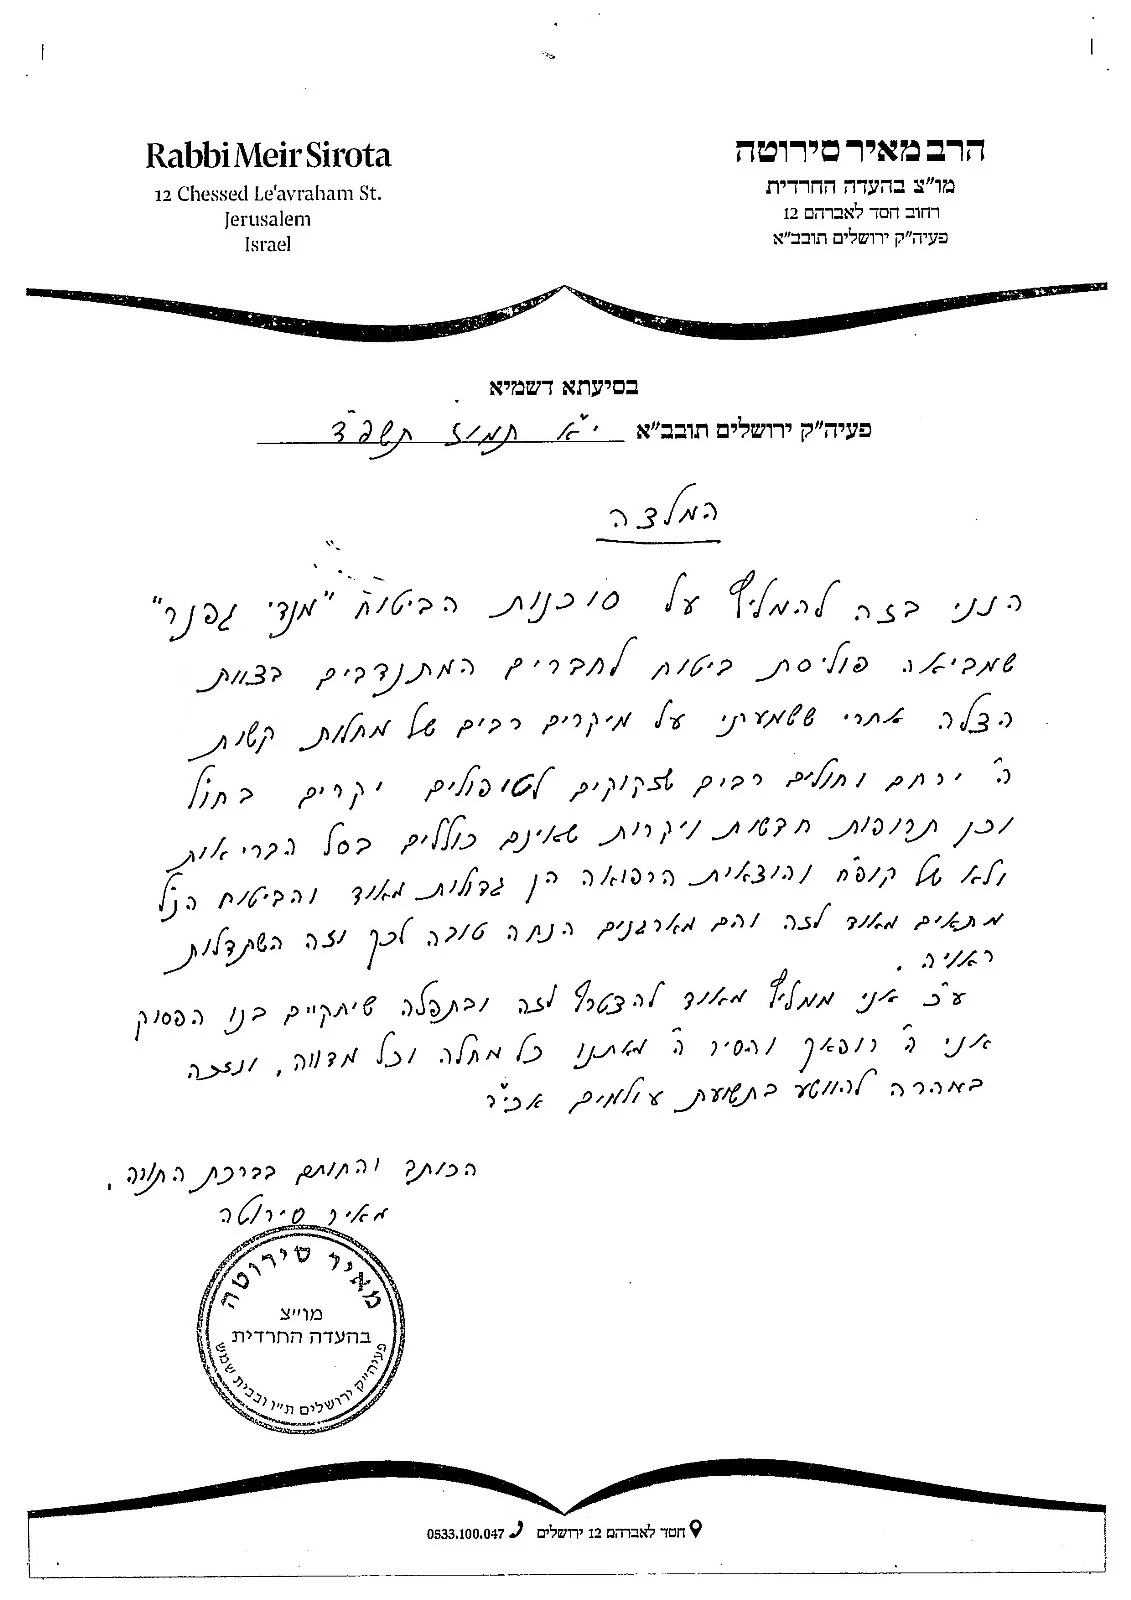 Rabbi Meir Sirota
12 Chessed Le'avraham St.
Jerusalem
Israel
הרב מאיר סירוטה
מו"צ בהעדה החרדית
רחוב חסד לאברהם 12
פעיה"ק ירושלים תובב"א
בסיעתא דשמיא
פעיה"ק ירושלים תובב"א י"א תמוז תשפ"ד
המלצה
הנני בזה להמליץ על סוכנות הביטוח "מנדי גפנר"
שמביאה פוליסת ביטוח לחברים המתנדבים בצוות
הצלה אחרי ששמעתי על מיקרים רבים של מחלות קשות
ה' ירחם וחולים רבים שזקוקים לטיפולים יקרים בחו"ל
וכן תרופות חדשות ויקרות שאינם כוללים בסל הבריאות
ולא של קופ"ח והוצאית הרפואה הן גדולות מאוד והביטוח הנ"ל
מתאים מאוד לזה והם מארגנים הנחה טובה לכך וזה השתדלות
ראויה.
ע"כ אני ממליץ מאוד להצטרף לזה ובתפלה שיתקיים בנו הפסוק
אני ה' רופאך והסיר ה' מאתנו כל מחלה וכל מדווה, ונזכה
במהרה להוושע בתשועת עולמים אכי"ר
הכותב והחותם בברכת התורה,
מאיר סירוטה
מאיר סירוטה
מו"צ
בהעדה החרדית
פעיה"ק ירושלים ת"ו ובבית שמש
חסד לאברהם 12 ירושלים 0533.100.047